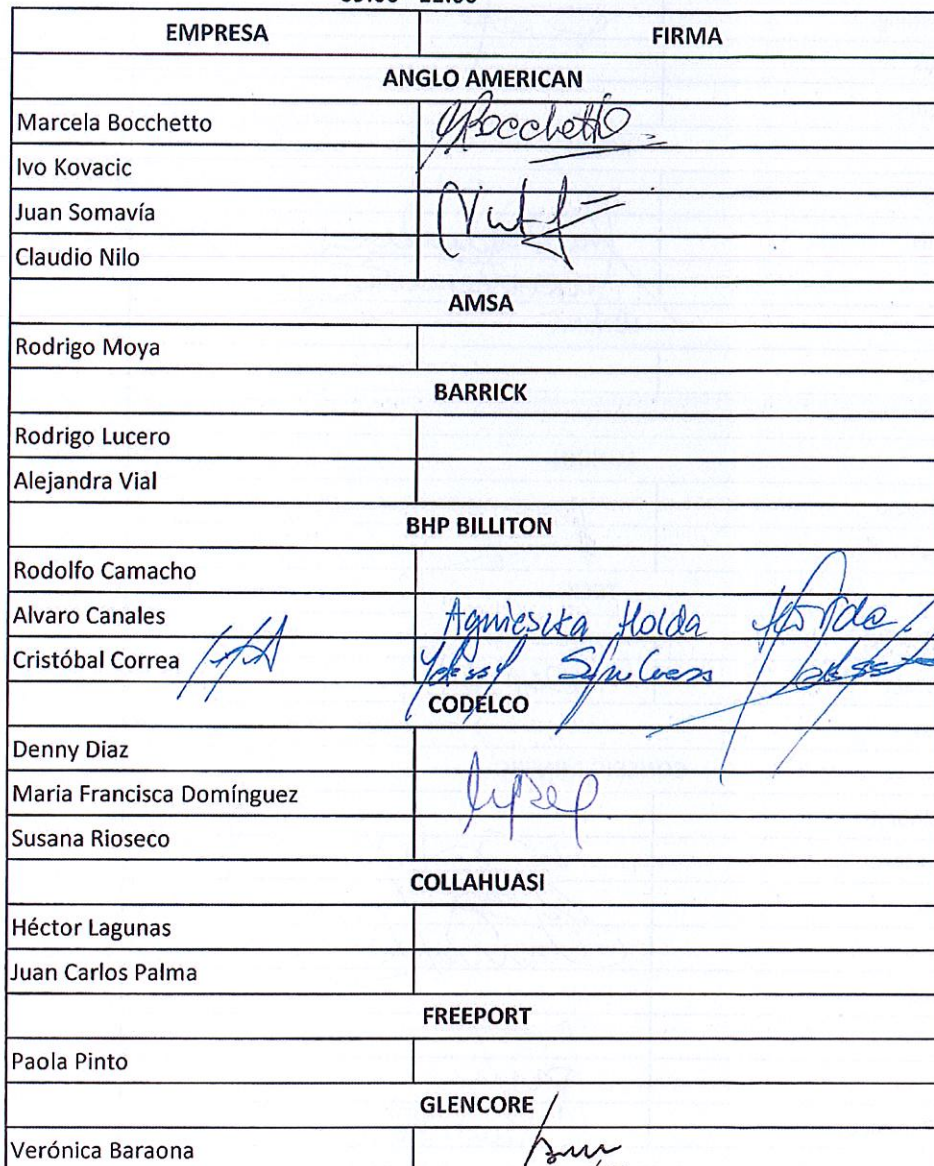 EMPRESA FIRMA
ANGLO AMERICAN
Marcela Bocchetto Bocchetto
Ivo Kovacic
Juan Somavía
Claudio Nilo
AMSA
Rodrigo Moya
BARRICK
Rodrigo Lucero
Alejandra Vial
BHP BILLITON
Rodolfo Camacho
Alvaro Canales Agnieszka Holda Holda
Cristóbal Correa
CODELCO
Denny Diaz
Maria Francisca Domínguez
Susana Rioseco
COLLAHUASI
Héctor Lagunas
Juan Carlos Palma
FREEPORT
Paola Pinto
GLENCORE
Verónica Baraona